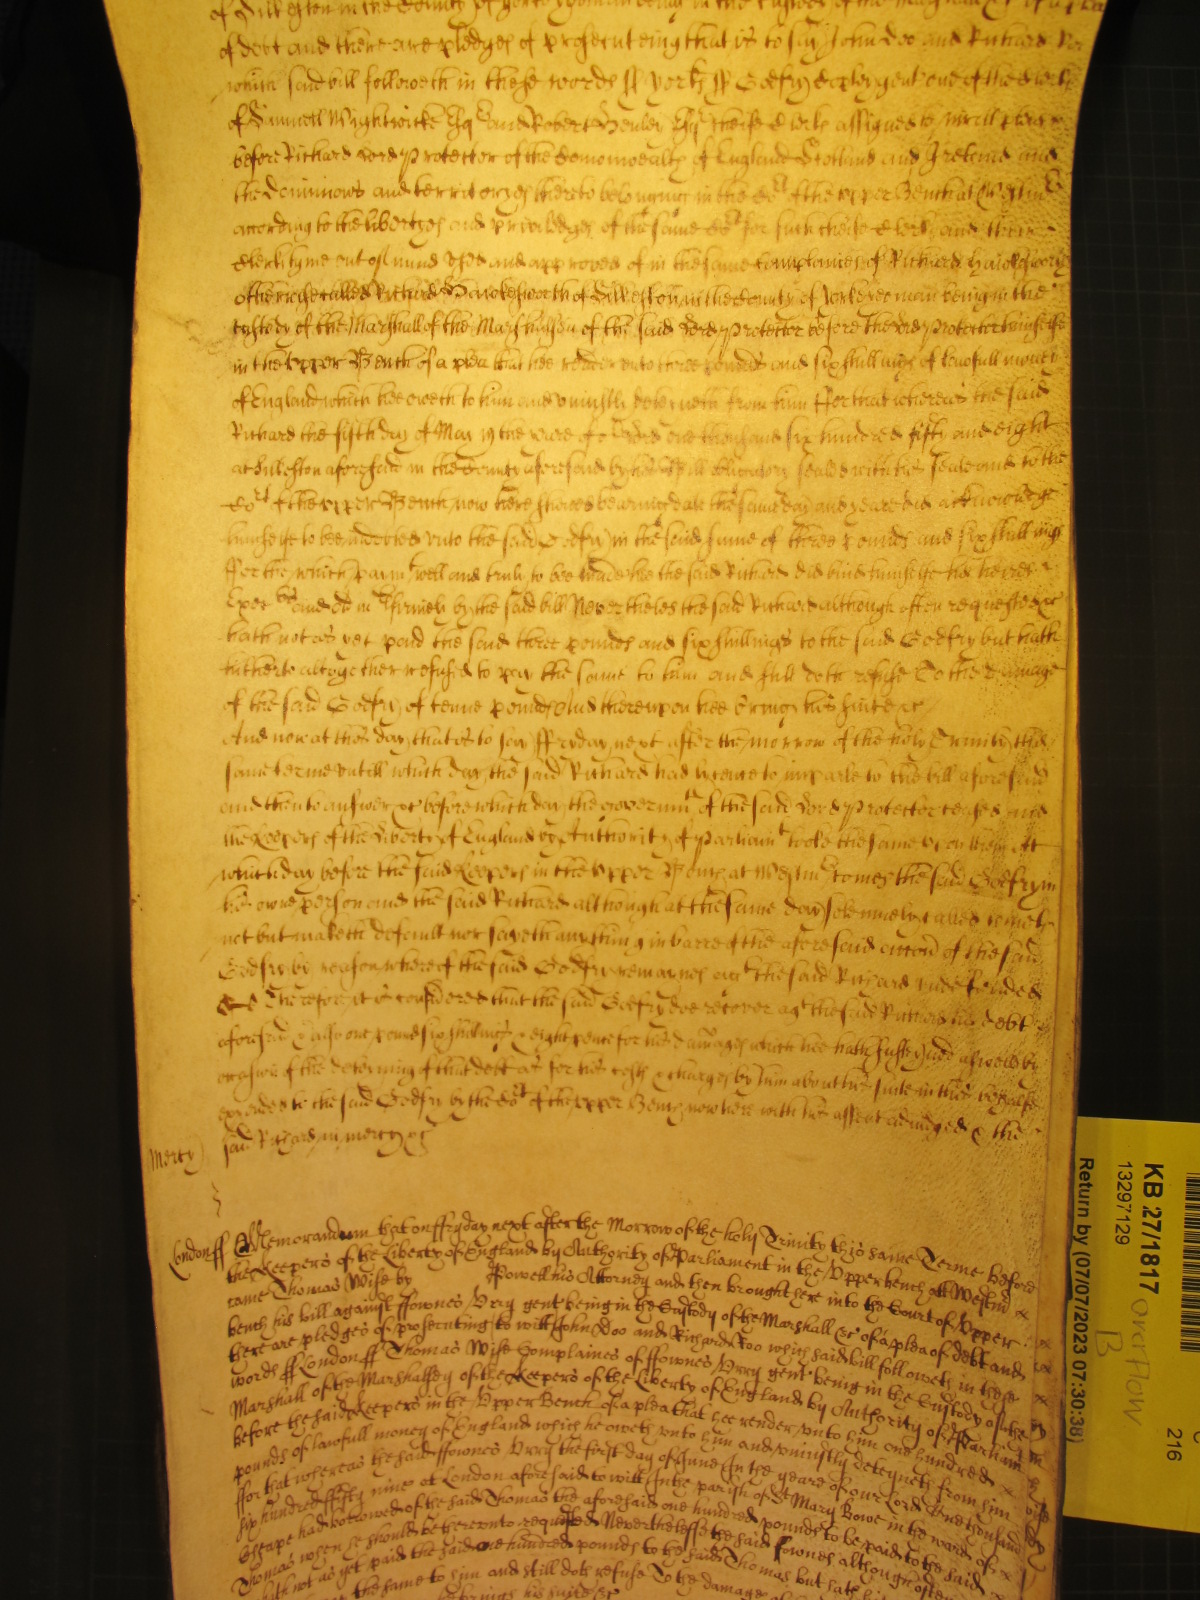 of Silkeston in the County of Yorke yeoman being in the Custody of the Marshall &c of a plea
of debt and there are pledges of prosecuteing that is to say John Doo and Richard Roo
which said bill followeth in these words ss York ss Godfry gent one of the Clerks
of Samuell Wightwicke Esqr and Robert Henley Esqr cheife Clerke assigned to inroll pleas
before Richard Lord Protector of the Comonwealth of England Scotland and Ireland and
the dominions and territoryes thereto belonging in the Cort of the vpper Bench at Westmr
according to the libertyes and priviledges of the same Cort for such cheife Clerke and their
Clerks tyme out of mind vsed and approved of in the same complaines of Richard Hawkesworth
otherwise called Richard Hawkesworth of Silkeston in the County of Yorke yeoman being in the
Custody of the Marshall of the Marshalsea of the said Lord Protector before the Lord Protector himselfe
in the vpper Bench of a plea that hee render vnto him three pounds and six shillings of lawfull money
of England which hee oweth to him and vniustly deteyneth from him ffor that whereas the said
Richard the fifth day of May in the yeare of or Lord one thousand six hundred fifty and eight
at Silkeston aforesaid in the County aforesaid by his bill obligatory sealed with his seale and to the
Cort of the vpper Bench now here shewed beareing date the same day and yeare did acknowledge
himselfe to bee indebted vnto the said Godfry in the said sume of three pounds and six shillings
ffor the which paymt well and truly to bee made hee the said Richard did bind himselfe his heyres
Exors and firmely by the said bill Neverthelesse the said Richard although often requested &c
hath not as yet paid the said three pounds and six shillings to the said Godfry but hath
hitherto altogether refused to pay the same to him and still doth refuse To the damage
of the said Godfry of tenne pounds And therevpon hee brings his suite &c
And now at this day that is to say ffryday next after the morrow of the holy Trinity this
same terme vntill which day the said Richard had lycence to imparle to the bill aforesaid
and then to answer &c before which day the govermt of the said Lord Protector ceased and
the Keepers of the liberty of England by Authority of Parliamt tooke the same vpon them At
which day before the said Keepers in the vpper Bench at Westmr comes the said Godfry in
his owne person and the said Richard although at the same day solemnely called cometh
not but maketh default nor sayeth any thing in barre of the aforesaid accon of the said
Godfry by reason whereof the said Godfry remaynes agt the said Richard vndefended
&c Therefore it is considered that the said Godfry doe recover agt the said Richard his debt
aforesaid & also one pound six shillings & eight pence for his damages which hee hath susteyned aswell by
occasion of the deteyning of that debt as for his costs & charges by him about his suite in this behalfe
expended to the said Godfry by the Cort of the vpper Bench now here with his assent adiudged & the
said Richard in mercy &c
Mercy
London ss Memorandum that on ffryday next after the Morrow of the holy Trinity this same Terme before
the Keepers of the Liberty of England by Authority of Parliament in the Vpper bench att Westmr
came Thomas Wise by Powell his Attorney and then brought here into the Court of Vpper
bench his bill against ffownes Vrry gent being in the Custody of the Marshall &c of a plea of debt and
there are pledges of prosecuting to witt John Doo and Richard Roo which said bill followeth in these
words ss London ss Thomas Wise Complaines of ffownes Vrry gent being in the Custody of the
Marshall of the Marshalsey of the Keepers of the Liberty of England by Authority of Parliamt
before the said Keepers in the Vpper Bench of a plea that hee render vnto him one hundred
pounds of lawfull money of England which he oweth vnto him and vniustly deteyneth from him
ffor that whereas the said ffownes Vrry the first day of June In the yeare of our Lord One thousand
six hundred fifty nine at London aforesaid to witt In the parish of St Mary Bowe in the ward of
Cheape had borrowed of the said Thomas the aforesaid one hundred pounds to be paid to the said
Thomas when he should be therevnto required Neverthelesse the said ffownes although often
hath not as yet paid the said one hundred pounds to the said Thomas but hath
the same to him and still doth refuse To the damage
brings his suite &c
KB 27/1817
13297129
Return by (07/07/2023 07:30:38)
overflow
B
216